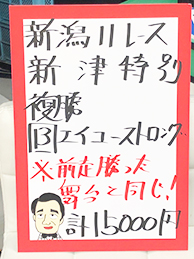 新潟川レス
新津特別
複勝
13エイユーストロング
※前走勝った
舞台と同じ!
計15000円